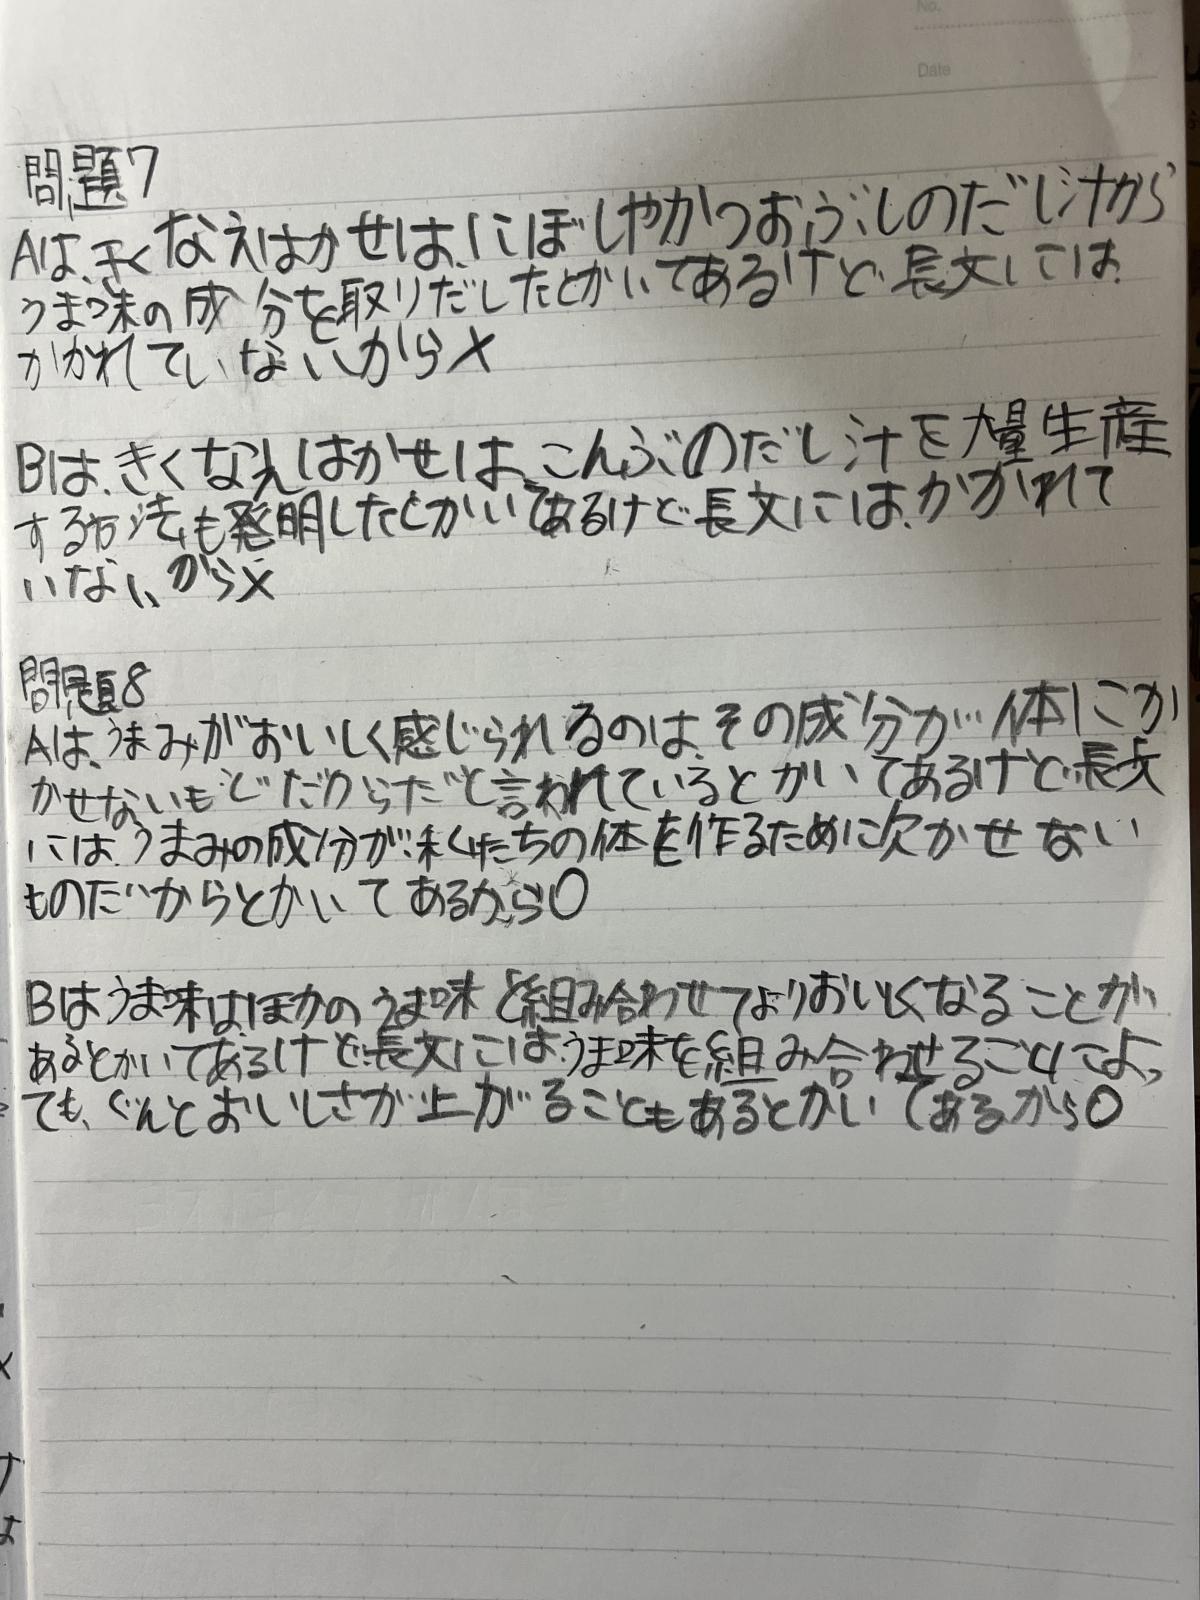 No.
Date
問題7
Aは、きくなえはかせは、にぼしやかつおぶしのだし汁から
うま味の成分を取りだしたとかいてあるけど、長文には、
かかれていないから×
Bは、きくなえはかせは、こんぶのだし汁を大量生産
する方法も発明したとかいてあるけど長文には、かかれて
いないから×
問題8
Aは、うまみがおいしく感じられるのは、その成分が体にか
かせないもどだからだと言われているとかいてあるけど、長文
には、うまみの成分が私たちの体を作るために欠かせない
ものだからとかいてあるから○
Bはうま味は、ほかのうま味と組み合わせてよりおいしくなることが
あるとかいてあるけど、長文には、うま味を組み合わせることによっ
ても、ぐんとおいしさが上がることもあるとかいてあるから○